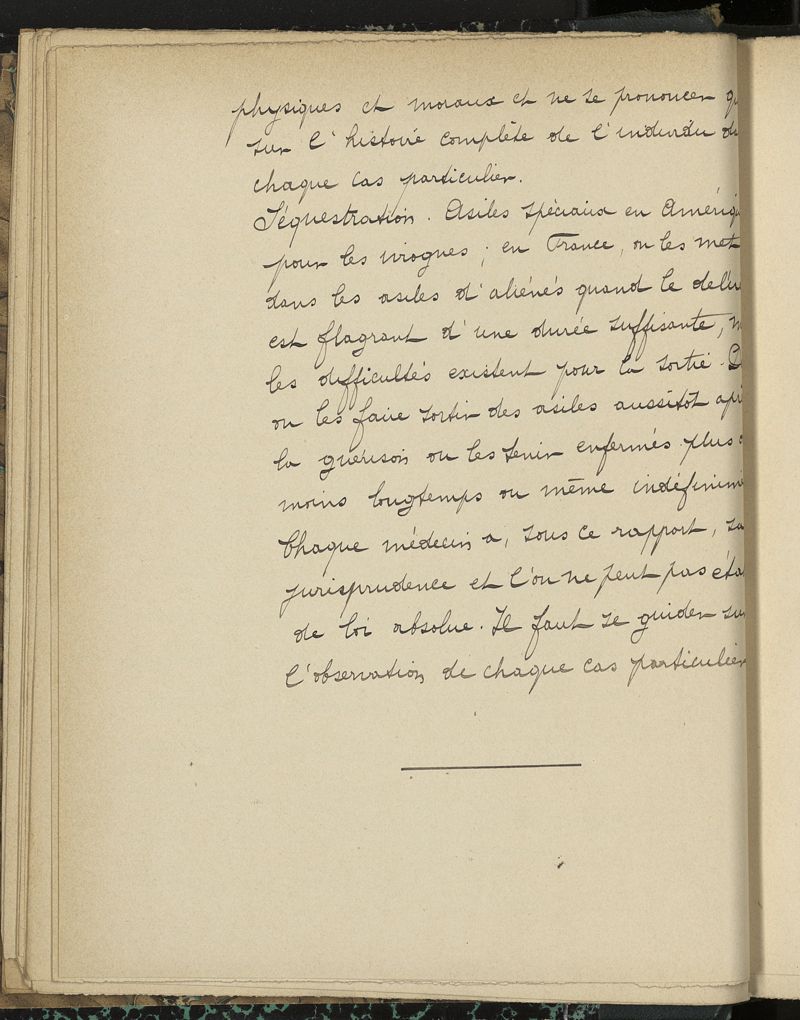 physiques et moraux et ne se prononcer
sur l'histoire complète de l'individu
chaque cas particulier.
Séquestration. Asiles spéciaux en Amériq
pour les ivrognes; en France, on les met
dans les asiles d'aliénés quand le delir
est flagrant d'une durée suffisante,
les difficultés existent pour la sortie.
ou les faire sortir des asiles aussitôt apr
la guérison ou les tenir enfermés plus
moins longtemps ou même indéfinim
Chaque médecin a, sous ce rapport, sa
jurisprudence et l'on ne peut pas éta
de loi absolue. Il faut se guider sur
l'observation de chaque cas particulier